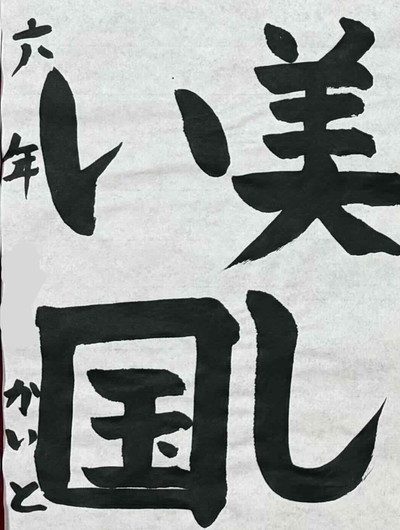 美し
い国
六年 かいと